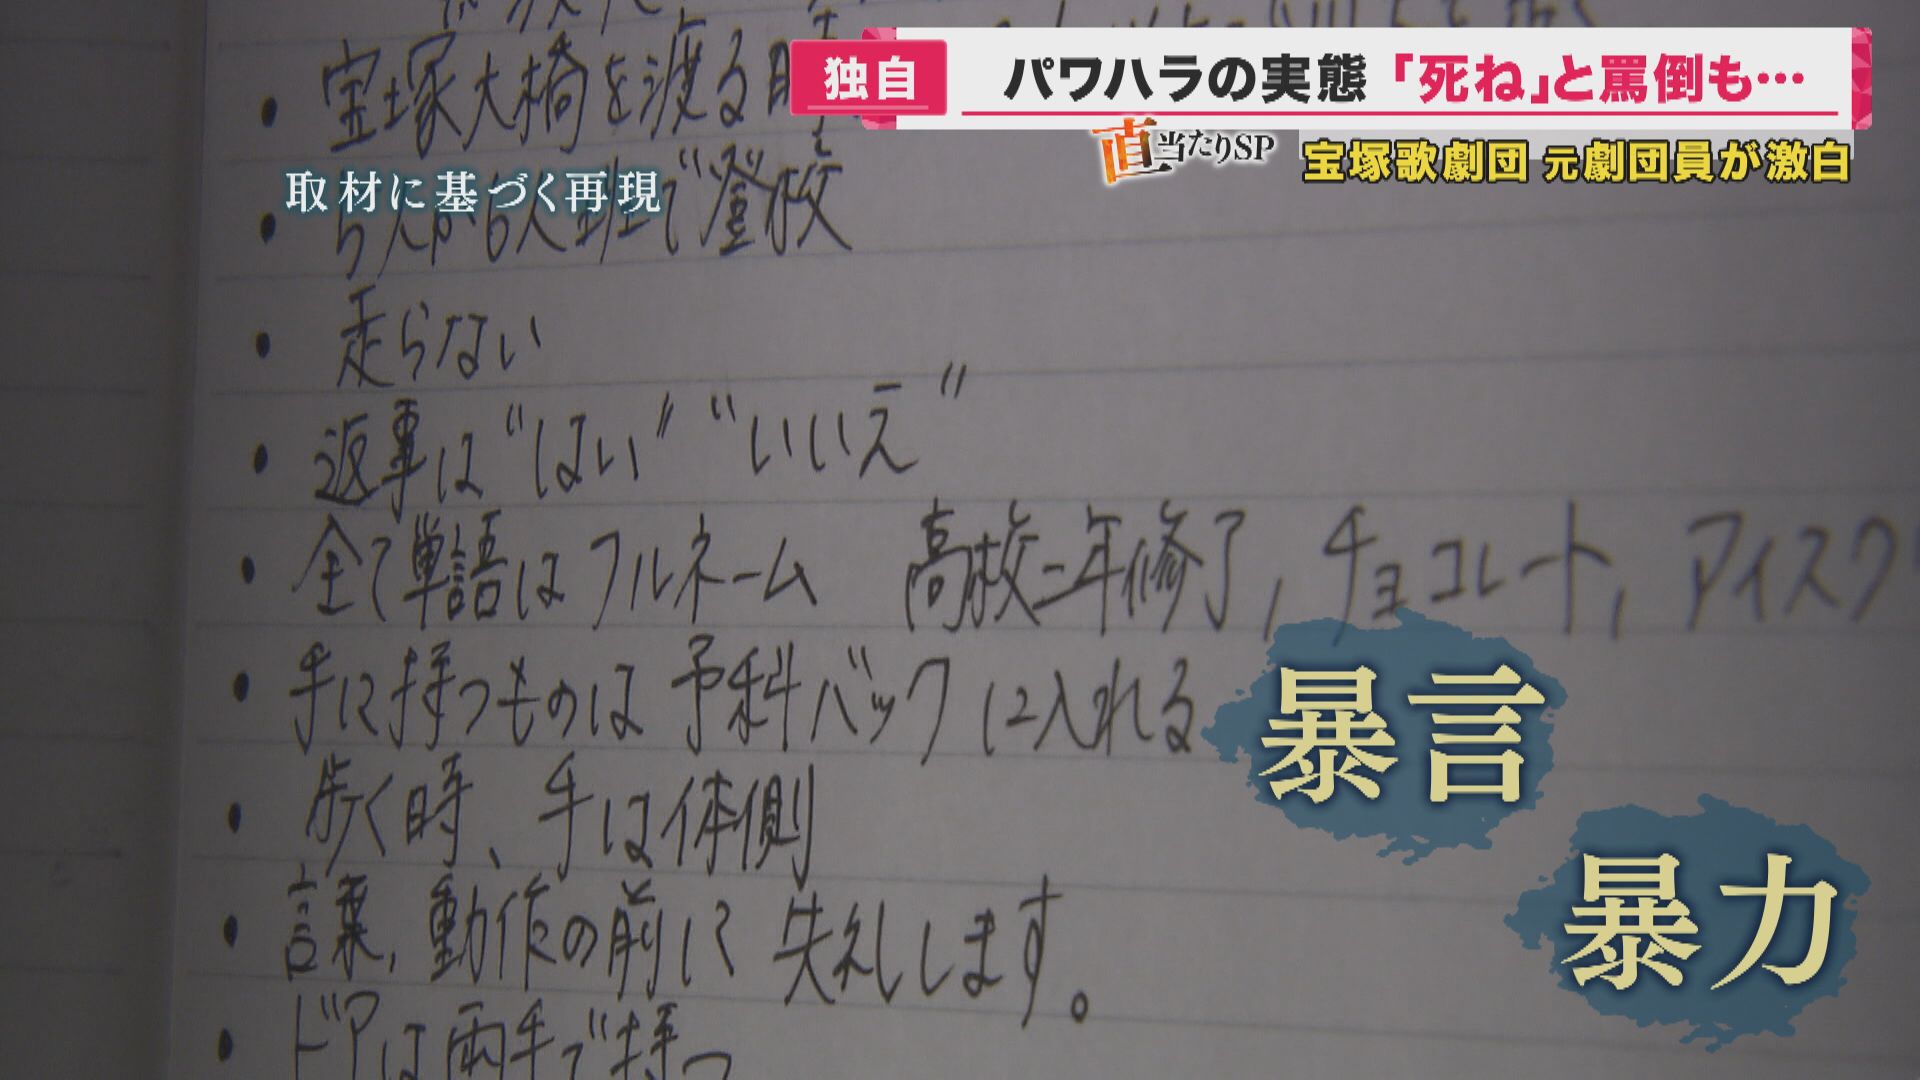 独自
パワハラの実態 「死ね」と罵倒も…
直当たりSP
宝塚歌劇団 元劇団員が激白
取材に基づく再現
・宝塚大橋を渡る時
・5人か6人班で登校
・走らない
・返事は“はい”“いいえ”
・全て単語はフルネーム 高校二年修了, チョコレート, アイスク
・手に持つものは予科バックに入れる
・歩く時、手は体側
・言葉, 動作の前に失礼します。
・ドアは両手で持つ
暴言
暴力